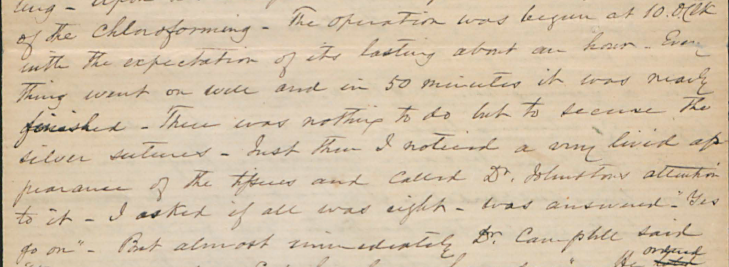 of the Chloroforming - The operation was begun at 10.Oclk
with the expectation of its lasting about an hour - Every
thing went on well and in 50 minutes it was nearly
finished - There was nothing to do but to secure the
silver sutures - Just then I noticed a very livid ap
pearance of the tissues and called Dr. Johnston's attention
to it - I asked if all was right - was answered - "Yes
go on" - But almost immediately Dr. Campbell said
ordered